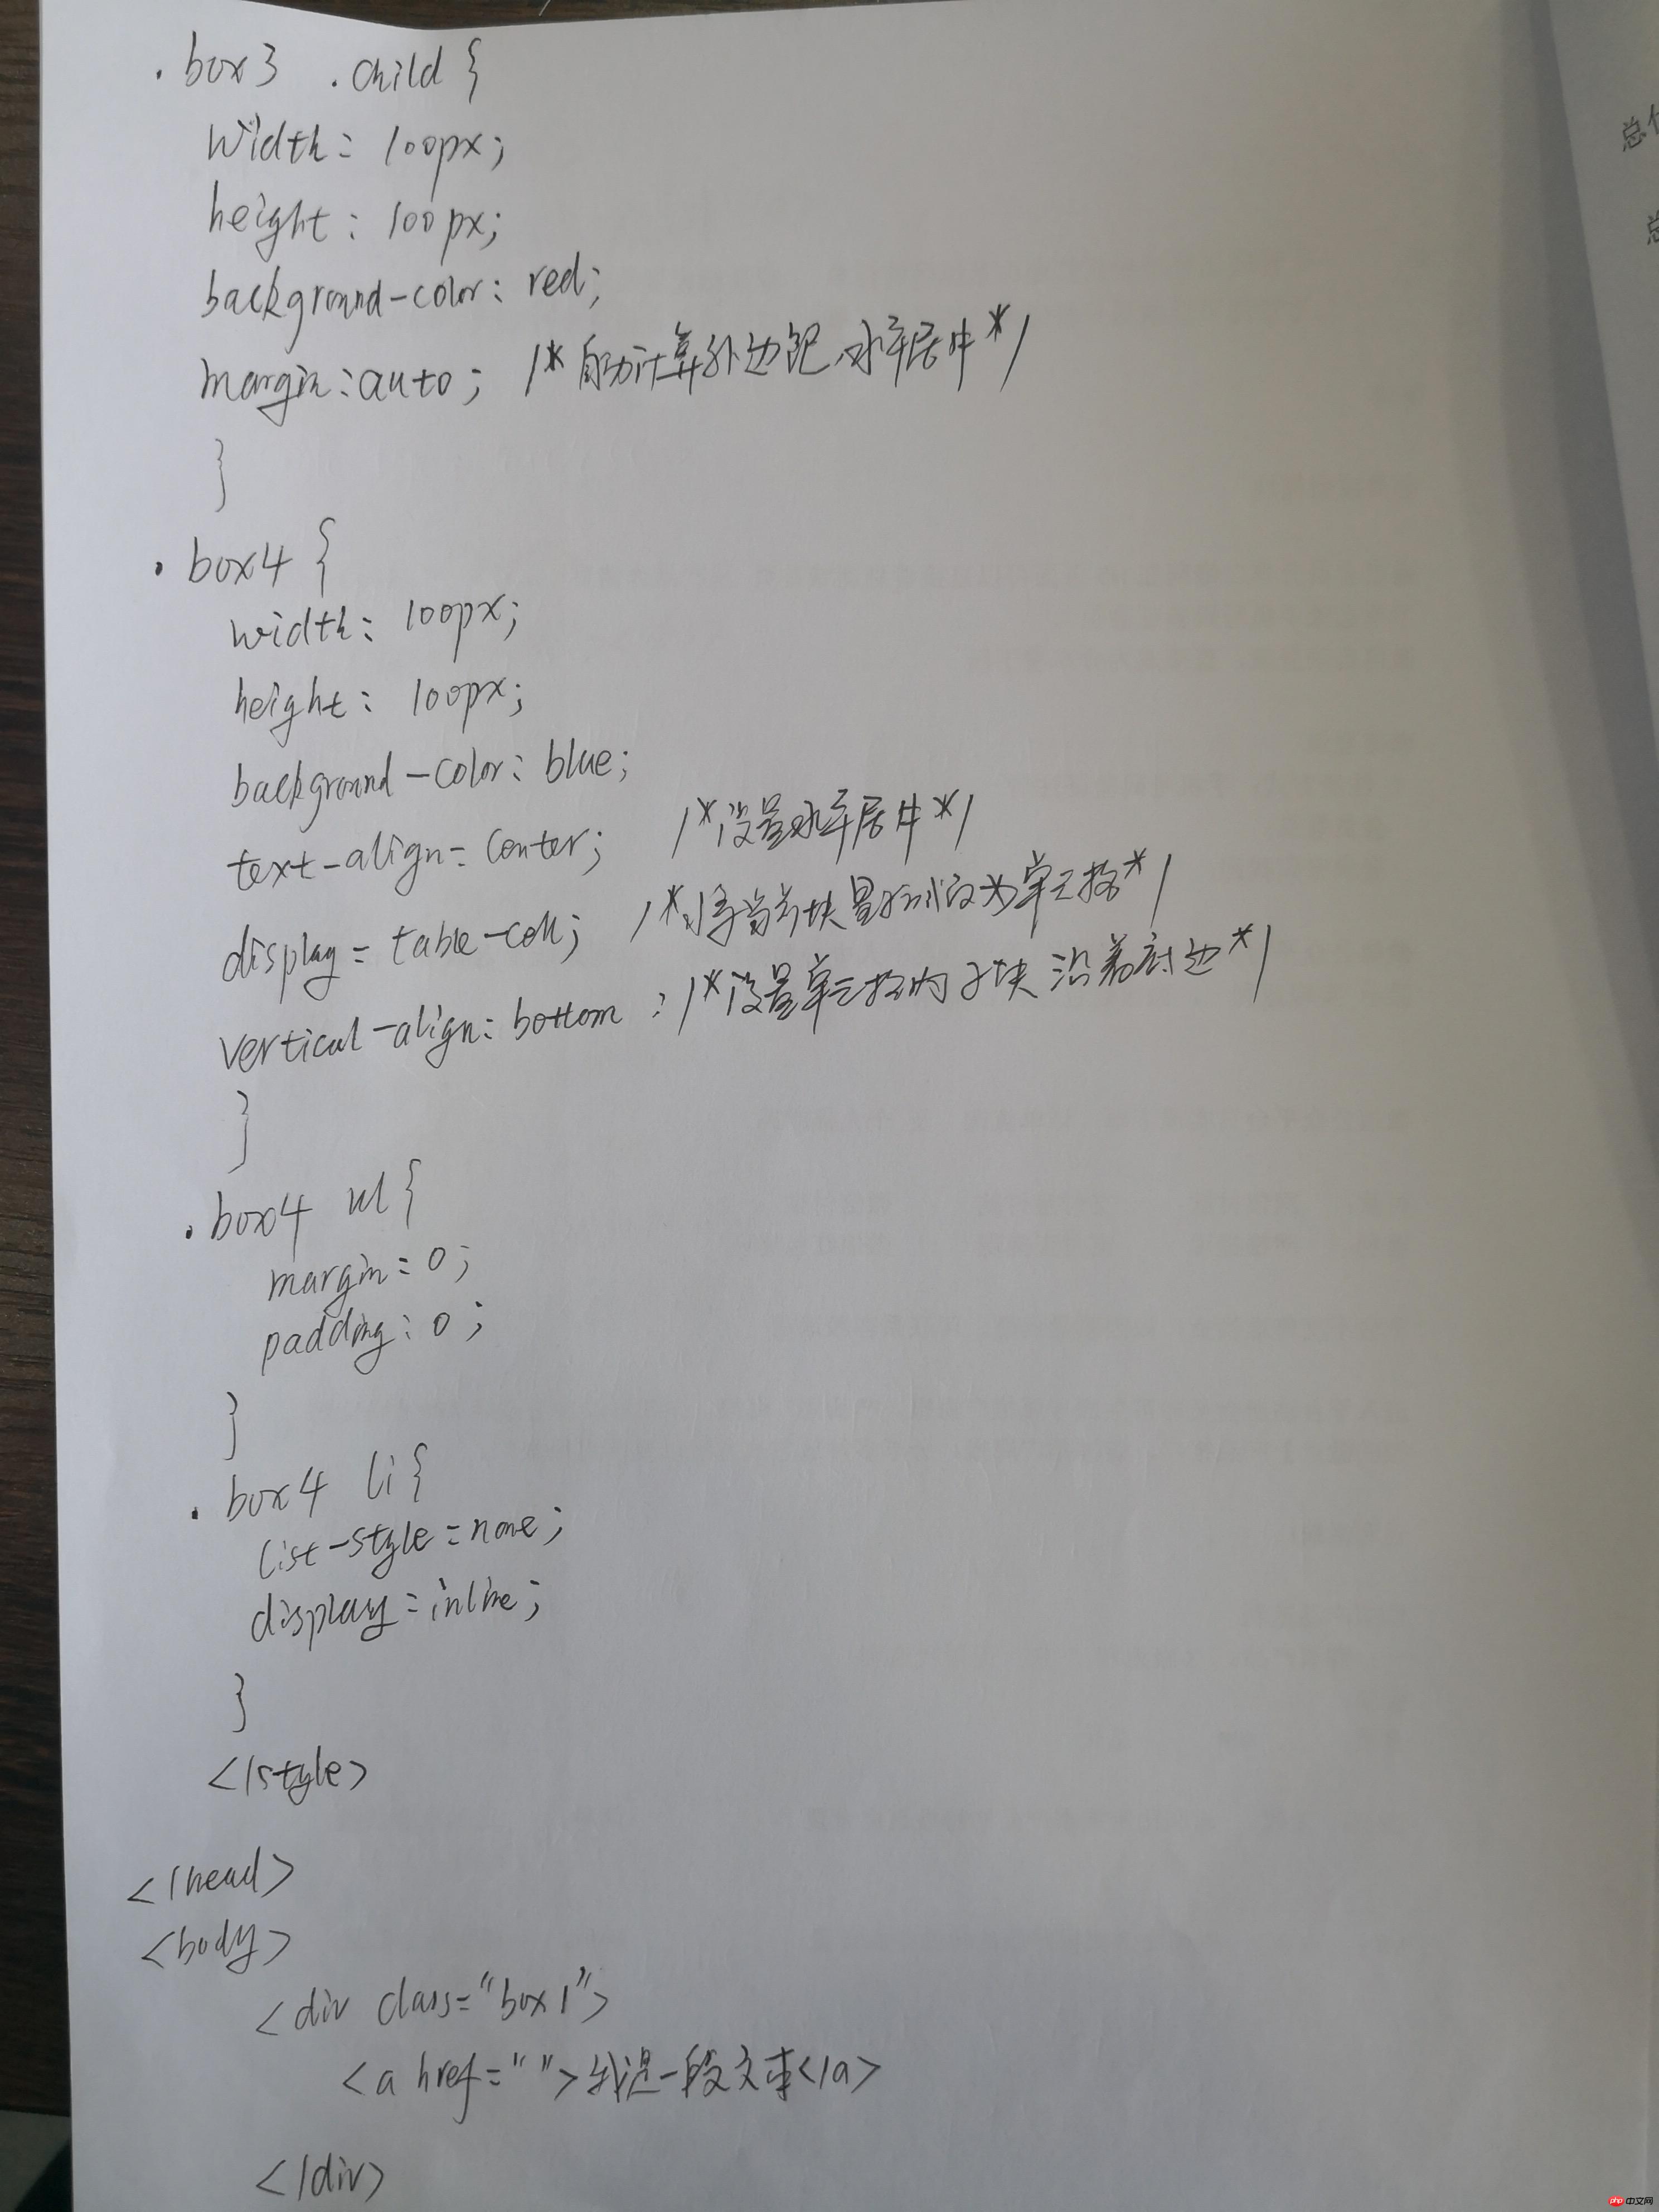 .box3 .child {
width: 100px;
height: 100px;
background-color: red;
margin: auto; /*自动计算外边距,水平居中*/
}
.box4 {
width: 100px;
height: 100px;
background-color: blue;
text-align: center; /*设置水平居中*/
display: table-cell; /*将当前块显示改为单元格*/
vertical-align: bottom; /*设置单元格内子块沿着底边*/
}
.box4 ul {
margin: 0;
padding: 0;
}
.box4 li {
list-style: none;
display: inline;
}
</style>
</head>
<body>
<div class="box1">
<a href="">我是一段文本</a>
</div>
总
总
php 中文网